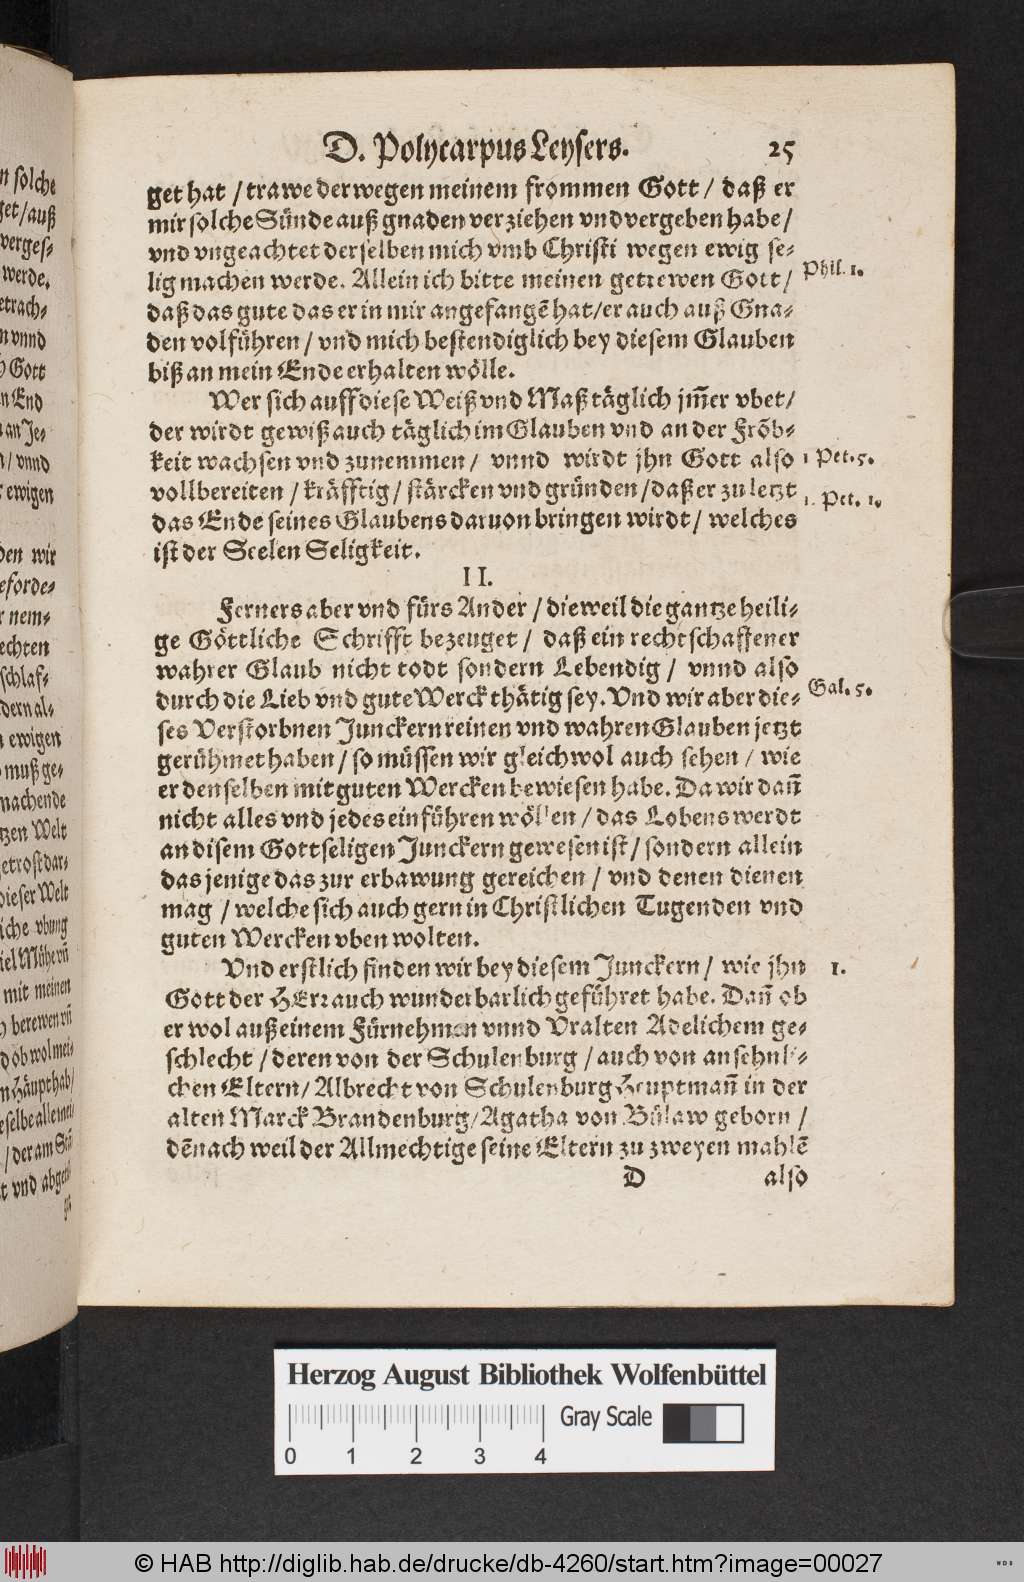 D. Polycarpus Leysers. 25
get hat / trawe derwegen meinem frommen Gott / daß er
mir solche Sünde auß gnaden verziehen vnd vergeben habe /
vnd vngeachtet derselben mich vmb Christi wegen ewig se-
lig machen werde. Allein ich bitte meinen getrewen Gott / Phil. 1.
daß das gute das er in mir angefangẽ hat / er auch auß Gna-
den volführen / vnd mich bestendiglich bey diesem Glauben
biß an mein Ende erhalten wölle.
Wer sich auff diese Weiß vnd Maß täglich jm̃er vbet /
der wirdt gewiß auch täglich im Glauben vnd an der Fröb-
keit wachsen vnd zunemmen / vnnd wirdt jhn Gott also 1 Pet. 5.
vollbereiten / kräfftig / stärcken vnd gründen / daß er zu letzt 1. Pet. 1.
das Ende seines Glaubens daruon bringen wirdt / welches
ist der Seelen Seligkeit.
II.
Ferners aber vnd fürs Ander / dieweil die gantze heili-
ge Göttliche Schrifft bezeuget / daß ein rechtschaffener
wahrer Glaub nicht todt sondern Lebendig / vnnd also
durch die Lieb vnd gute Werck thätig sey. Vnd wir aber die- Gal. 5.
ses Verstorbnen Junckern reinen vnd wahren Glauben jetzt
gerühmet haben / so müssen wir gleichwol auch sehen / wie
er denselben mit guten Wercken bewiesen habe. Da wir dañ
nicht alles vnd jedes einführen wöllen / das Lobens werdt
an disem Gottseligen Junckern gewesen ist / sondern allein
das jenige das zur erbawung gereichen / vnd denen dienen
mag / welche sich auch gern in Christlichen Tugenden vnd
guten Wercken vben wolten.
Vnd erstlich finden wir bey diesem Junckern / wie jhn 1.
Gott der HErr auch wunderbarlich geführet habe. Dañ ob
er wol auß einem Fürnehmen vnnd Vralten Adelichem ge-
schlecht / deren von der Schulenburg / auch von ansehnli-
chen Eltern / Albrecht von Schulenburg Heuptmañ in der
alten Marck Brandenburg / Agatha von Bülaw geborn /
dẽnach weil der Allmechtige seine Eltern zu zweyen mahlẽ
D also
n solche
get / auß
verges-
werde.
etrach-
n vnnd
Gott
n End
an Je-
/ vnnd
ewigen
den wir
eforde-
r nem-
echten
schlaf-
dern al-
ewigen
muß ge-
machende
tzen Welt
getrost dar-
dieser Welt
iche vbung
iel Mühe vñ
mit meinen
berewen vñ
d ob wol mei-
n Häupt hab /
eselbe alle mit
/ der am
t vnd
Herzog August Bibliothek Wolfenbüttel
Gray Scale
0 1 2 3 4
© HAB http://diglib.hab.de/drucke/db-4260/start.htm?image=00027
HAB